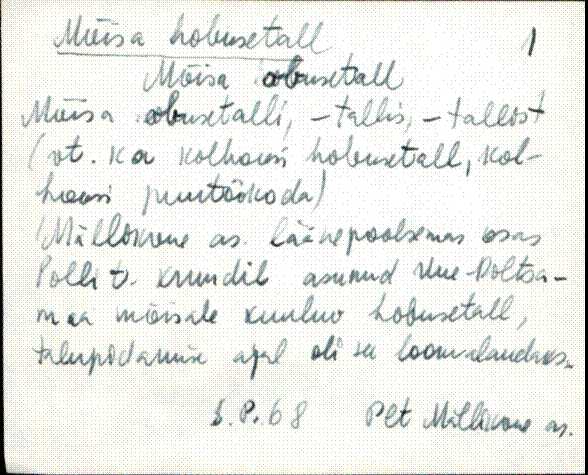 Mõisa hobusetall 1
Mõisa obusetall
Mõisa obusetalli, -tallis, -tallist
(vt. ka kolhoosi hobusetall, kol-
hoosi puutöökoda)
Mällikvere as. läänepoolsemas osas
Polli t. krundil asunud Uue-Põltsa-
maa mõisale kuuluv hobusetall,
talupidamise ajal oli see loomalaudaks.
6.P.68 Plt Mällikvere as.